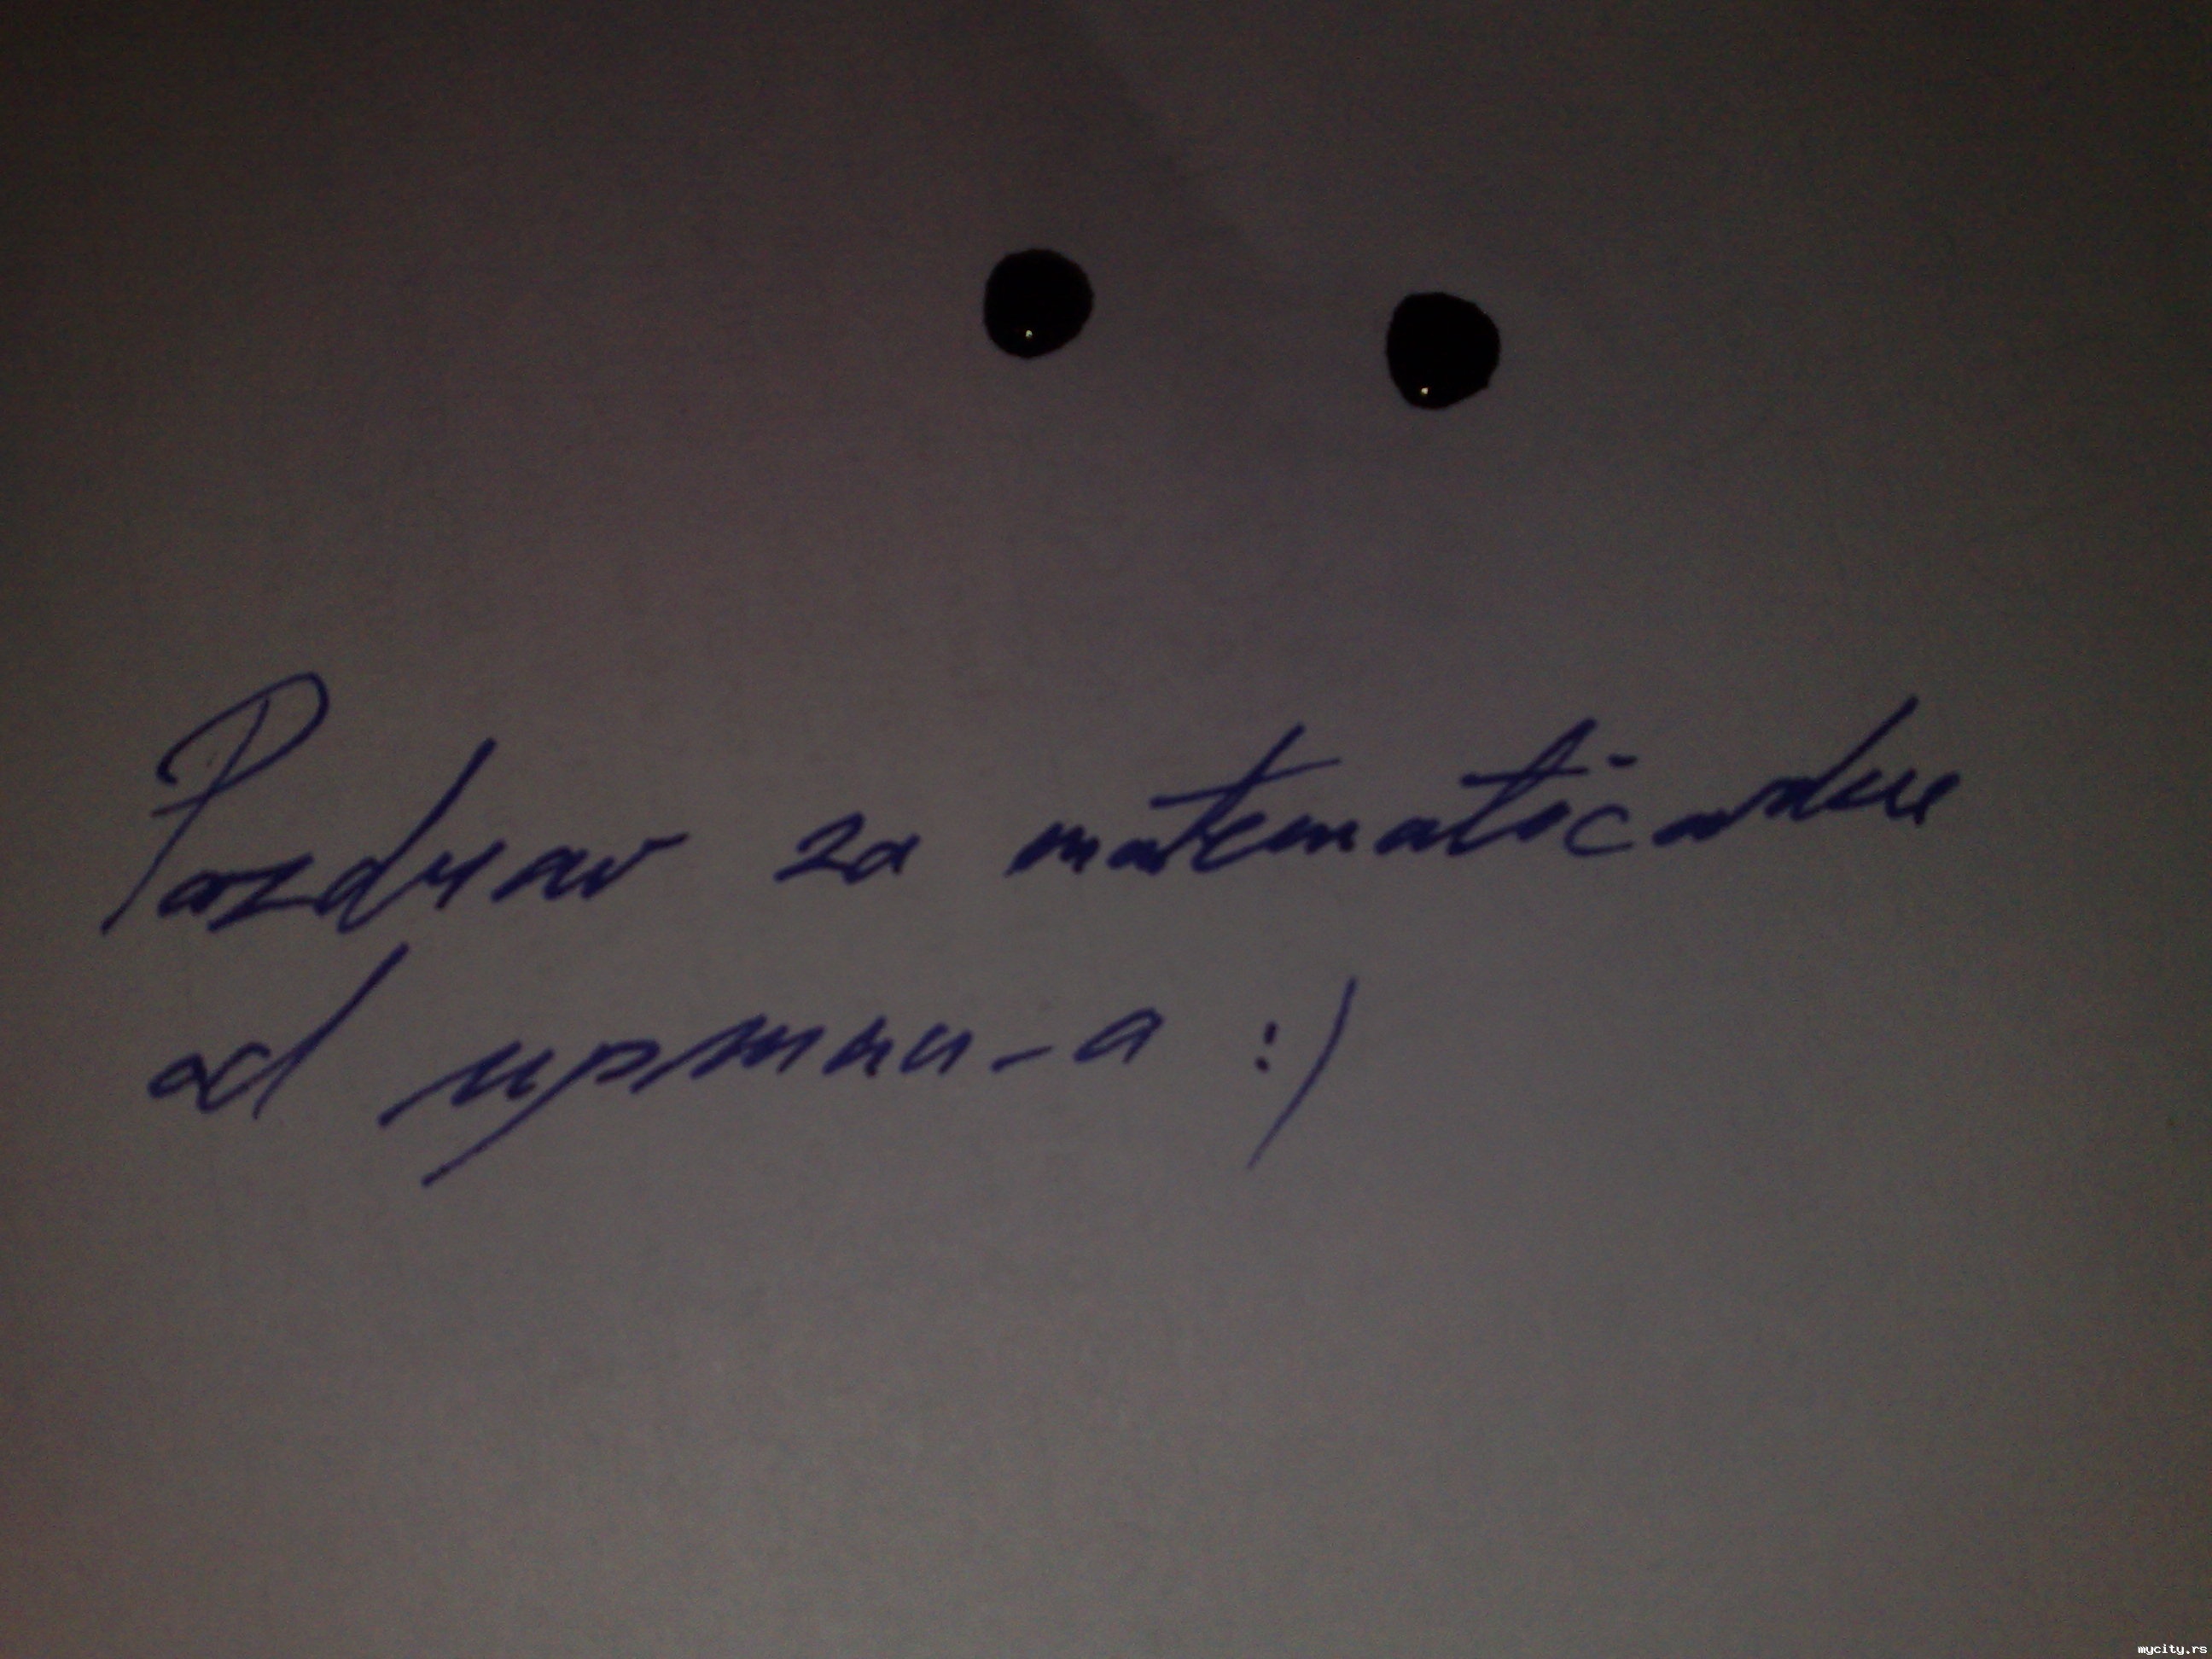 Pozdrav za matematičardue
od upmnu-a :)
mycity.rs